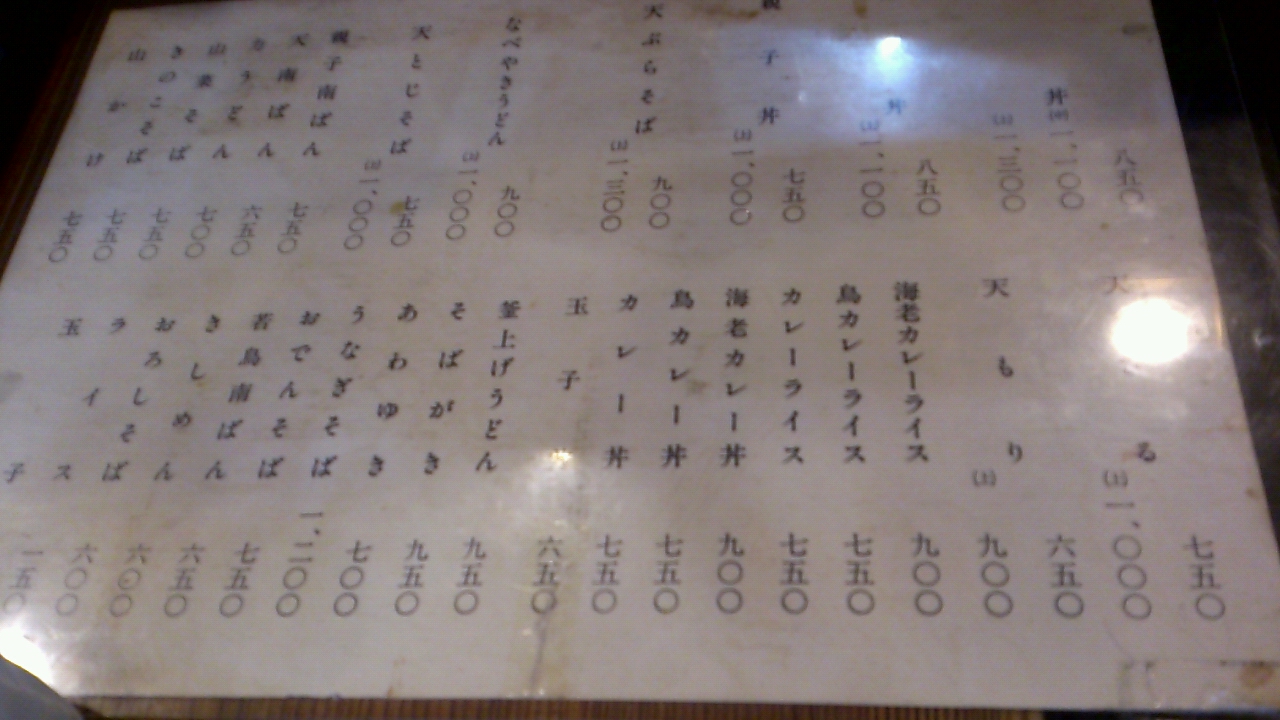 八五〇
丼
一、一〇〇
(上)一、三〇〇
丼
八五〇
(上)一、一〇〇
親子丼
七五〇
(上)一、〇〇〇
天ぷらそば
九〇〇
(上)一、三〇〇
なべやきうどん
九〇〇
(上)一、〇〇〇
天とじそば
七五〇
(上)一、〇〇〇
親子南ばん
七五〇
天南ばん
六五〇
力うどん
七〇〇
山菜そば
七五〇
きのこそば
七五〇
山かけ
七五〇
七五〇
天 る
(上)一、〇〇〇
六五〇
天もり
(上)九〇〇
海老カレーライス
九〇〇
鳥カレーライス
七五〇
カレーライス
七五〇
海老カレー丼
九〇〇
鳥カレー丼
七五〇
カレー丼
七五〇
玉子
六五〇
釜上げうどん
九五〇
そばがき
九五〇
あわゆき
七〇〇
うなぎそば
一、二〇〇
おでんそば
七五〇
若鳥南ばん
六五〇
きしめん
六〇〇
おろしそば
六〇〇
ライス
一五〇
玉子